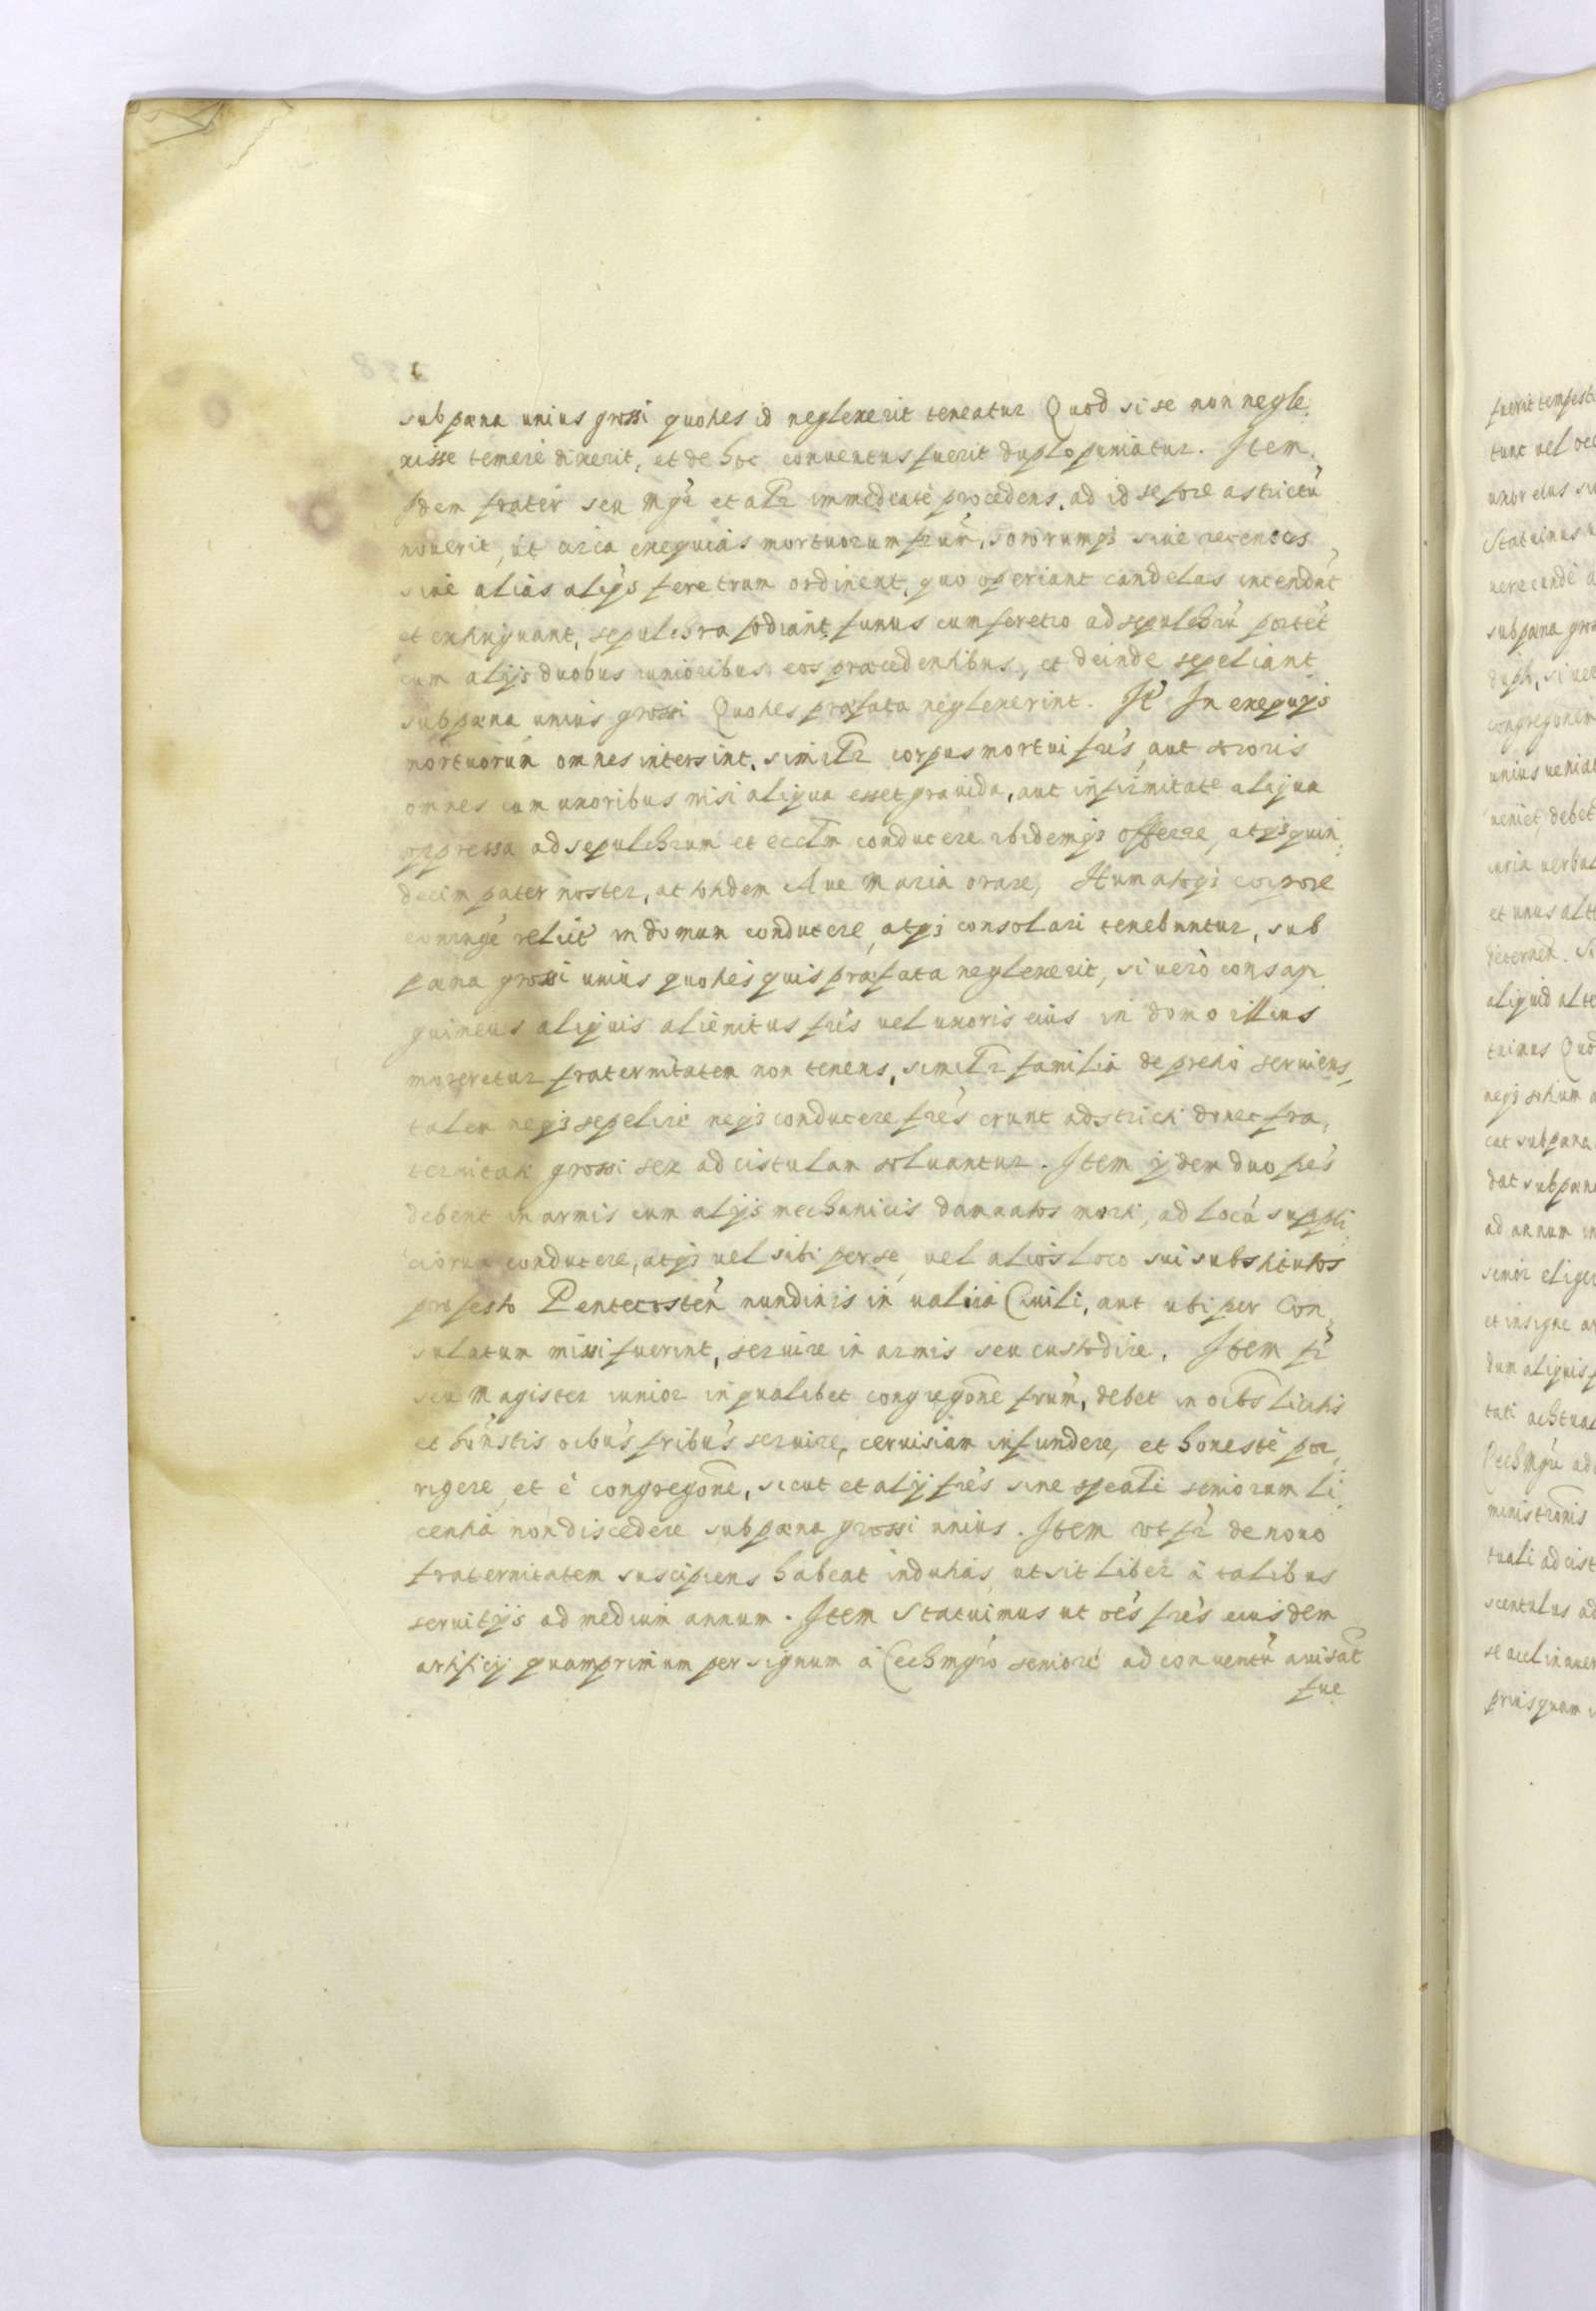 sub pœna unius grossi quoties id neglexerit teneatur Quod si se non negle,
xisse temerè dixerit, et de hoc conuentus fuerit duplo puniatur. Item.
Idem frater seu mgr̃ et alr̃ immediatè procedens, ad id se fore astrictũ
nouerit, ut circa exequias mortuorum frũm, sororumq3 siue recentes
siue alias alijs feretrum ordinent, quo operiant candelas incendãt
et extinguant, sepulchra fodiant, funus cum feretro ad sepulchrũ portẽt
cum alijs duobus iunioribus eos præcedentibus, et deinde sepeliant
sub pœna unius grossi Quoties præfata neglexerint. Itẽ In exequijs
mortuorum omnes intersint, similr̃ corpus mortui fr̃is, aut sororis
omnes cum uxoribus nisi aliqua esset grauida, aut infirmitate aliqua
oppressa ad sepulchrum et ecclm̃ conducere ibidemq3 offerre, atq3 quin,
decim pater noster, ac totidem Aue Maria orare, Humatoq3 corpore
coniugẽ relictã in domum conducere, atq3 consolari tenebuntur, sub
pœna grossi unius quoties quis præfata neglexerit, si uerò consan
guineus aliquis alienitus fr̃is uel uxoris eius in domo illius
moreretur fraternitatem non tenens, similr̃ familia de pretio seruiens,
talem neq3 sepelire neq3 conducere fr̃es erunt adstricti donec fra,
ternitati grossi sex ad cistulam soluantur. Item ijdem duo fr̃es
debent in armis cum alijs mechanicis damnatos morti, ad locũ suppli
ciorum conducere, atq3 uel sibi per se, uel alios loco sui substitutos
pro festo Pentecosteñ nundinis in ualua Ciuili, aut ubi per Con,
sulatum missi fuerint, seruire in armis seu custodire. Item fr̃
seu Magister iunior in qualibet congregõne frũm, debet in oĩbs licitis
et hõnstis oĩbus fr̃ibus seruire, ceruisiam infundere, et honestè por,
rigere, et è congregõne, sicut et alij fr̃es sine speãli seniorum li,
centia non discedere sub pœna grossi unius. Item ut fr̃ de nouo
fraternitatem suscipiens habeat inducias, ut sit liber à talibus
seruitijs ad medium annum. Item Statuimus ut oẽs fr̃es eiusdem
artificij quamprimum per signum à Cechmgr̃o seniore ad conuentũ auisãt
fue